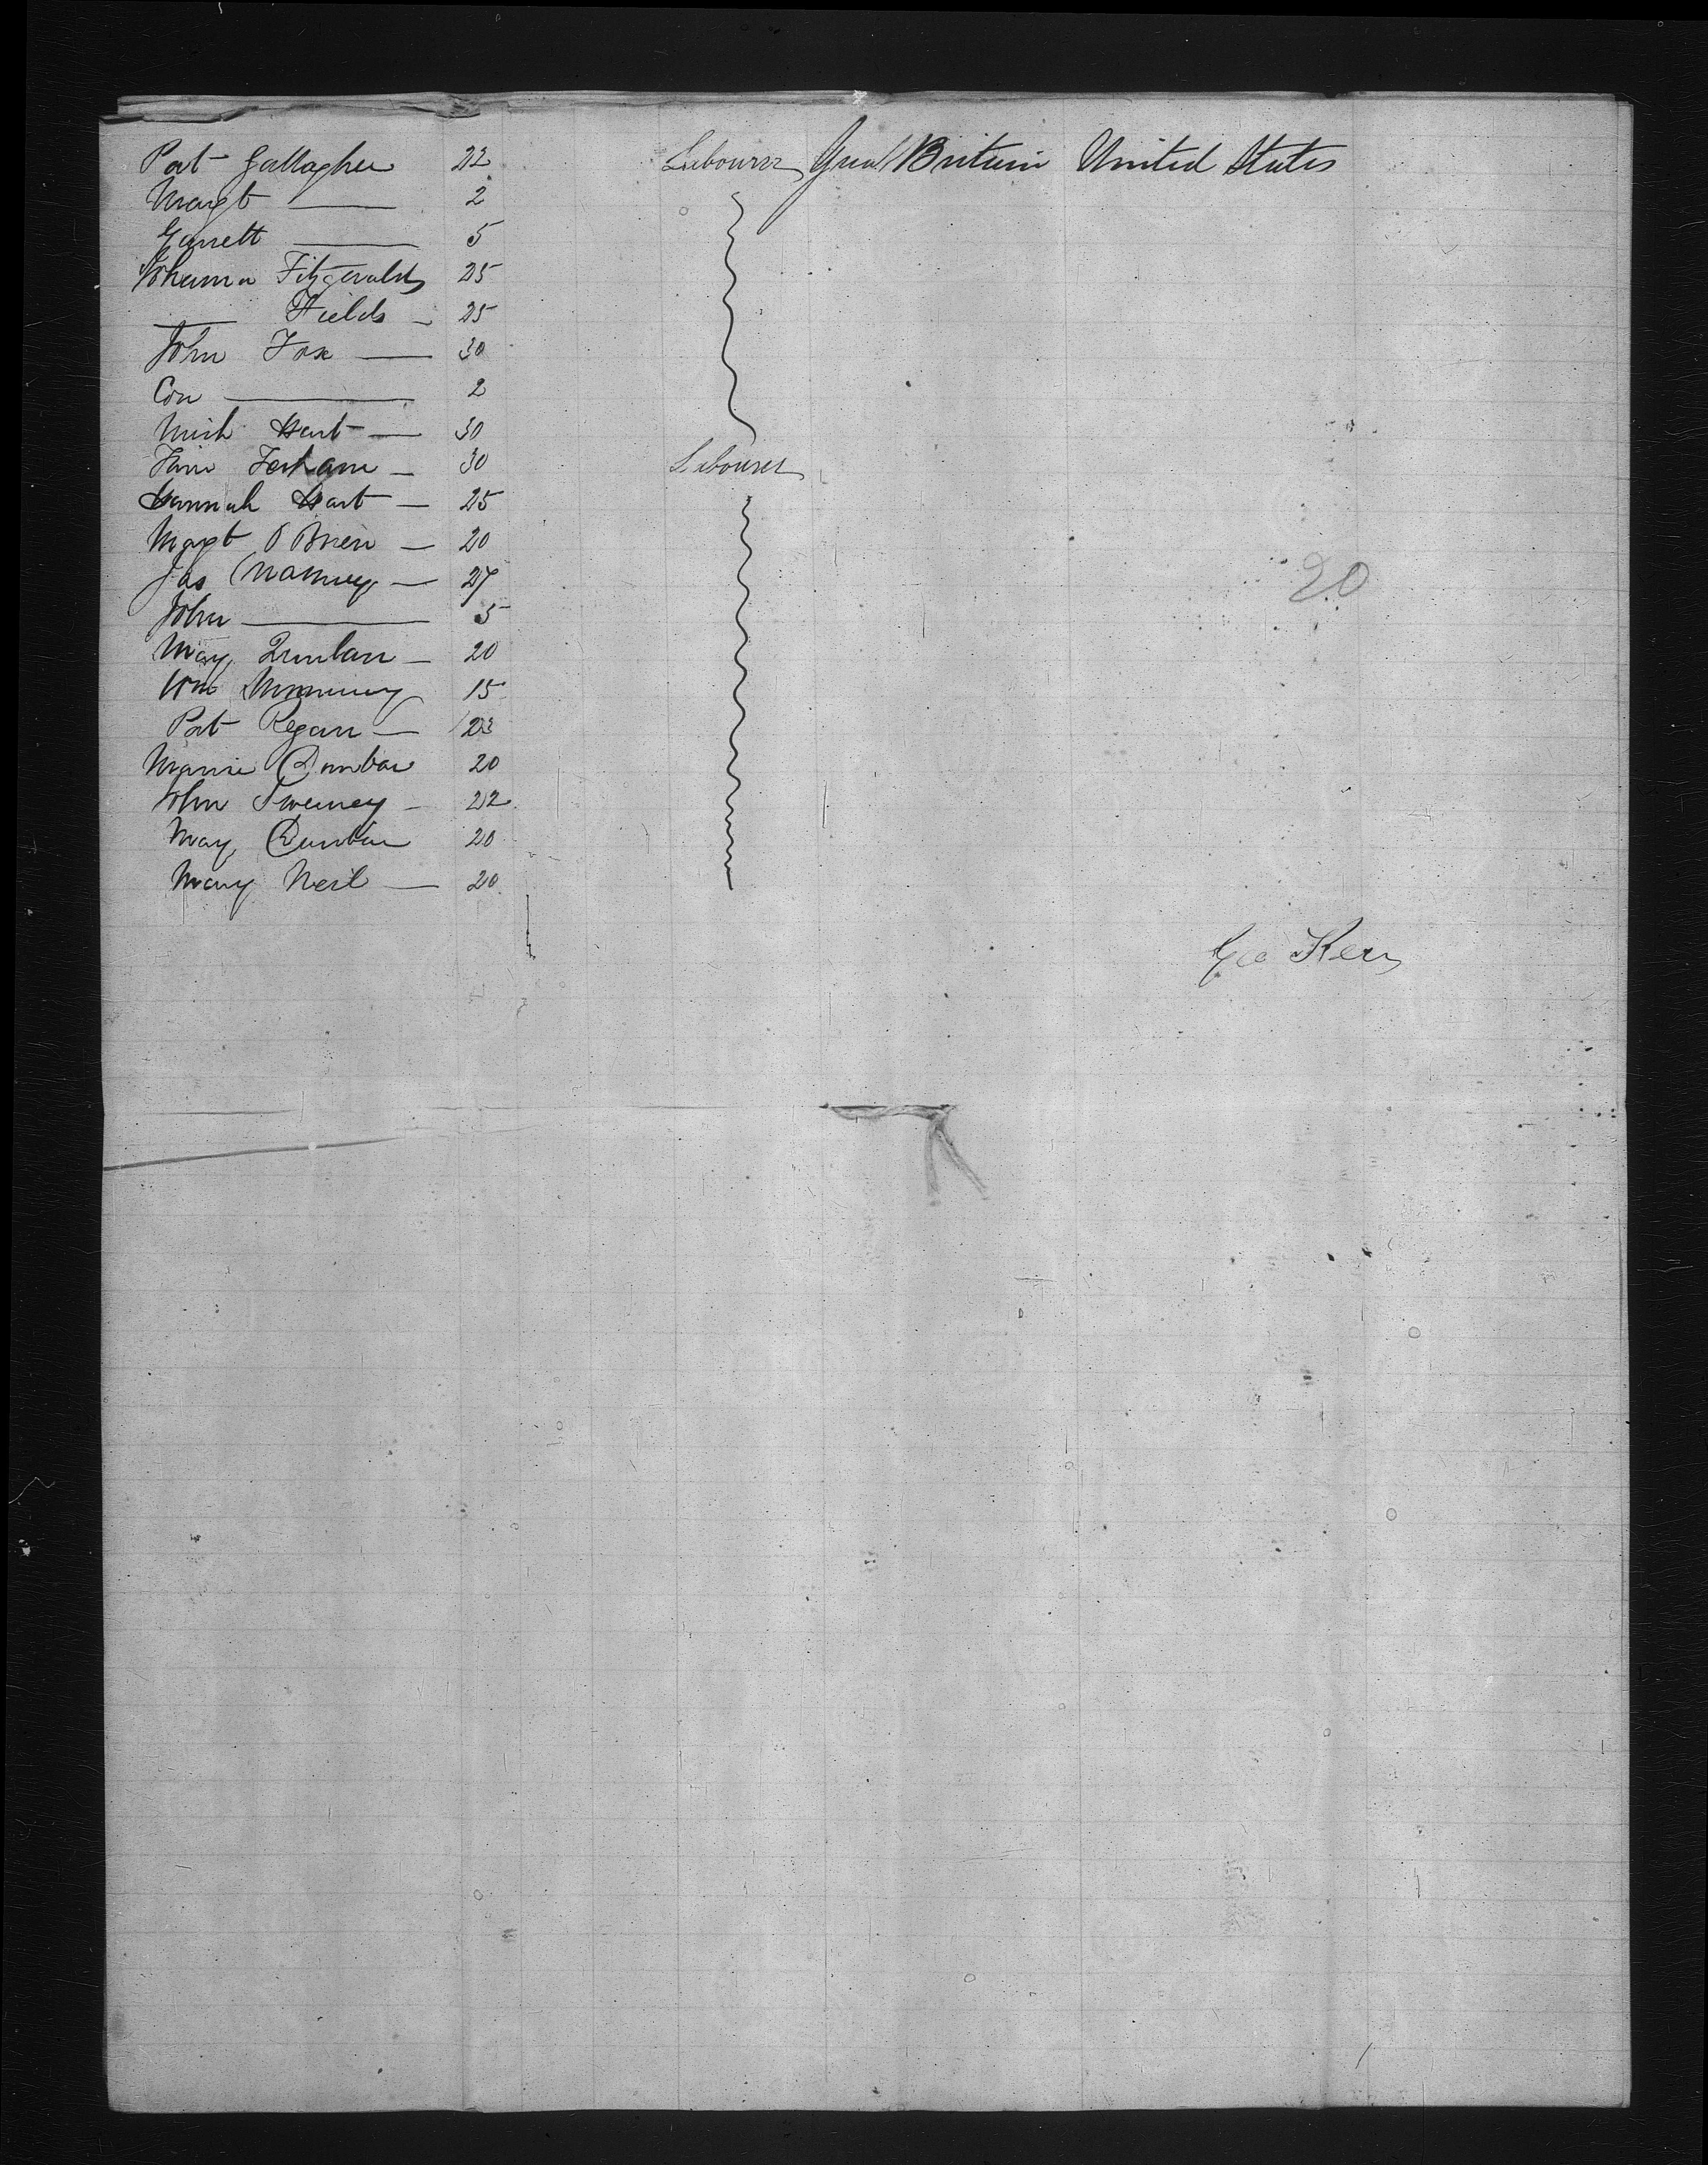 Pat Gallagher 22 Labourer Great Britain United States
Margt 2
Garrett 5
Johanna Fitzgerald 25
Fields 25
John Fox 30
Con 2
Mich Hart 30
30 Labourer
Hannah Hart 25
Margt O Brien 20
Jas 27
John 5
Mary Quinlan 20
Wm 15
Pat Regan 23
20
John Sweeney 22
Mary 20
Mary Neil 20
20
Geo Kerr